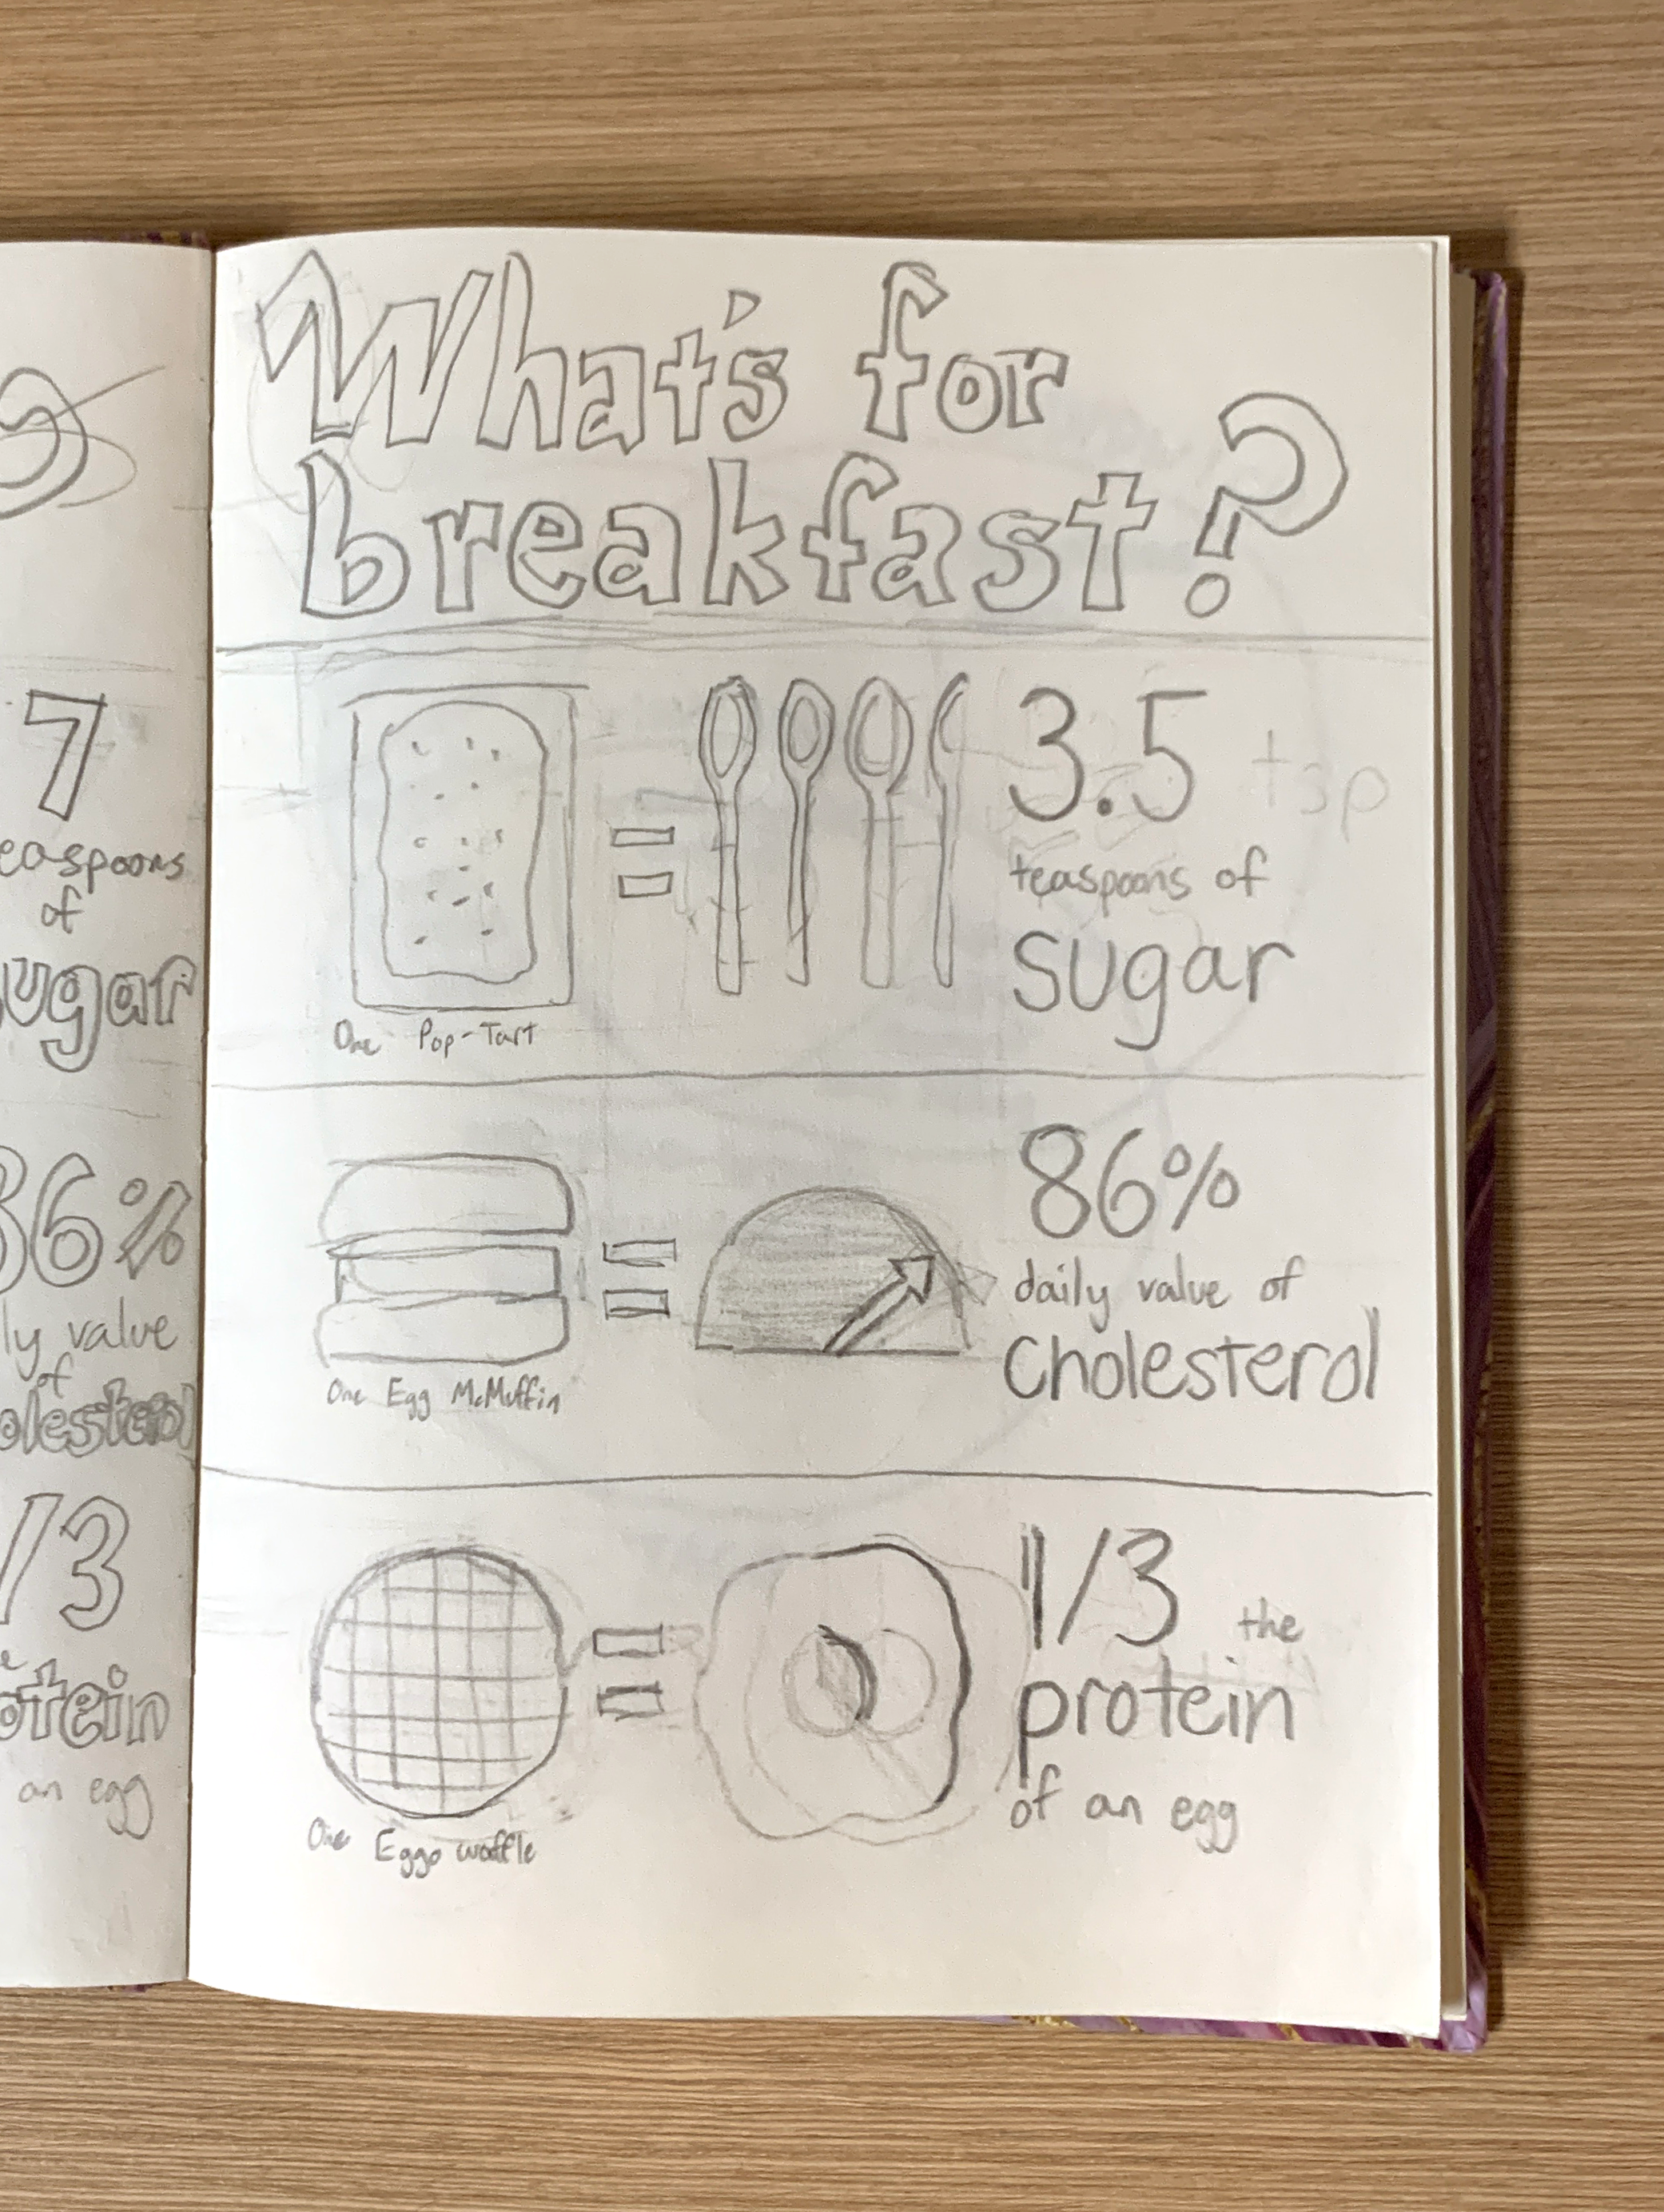 7
easpoons
of
ugar
86%
ly value
of
olesterol
/3
otein
an egg
What's for
breakfast?
3.5 tsp
teaspoons of
sugar
One Pop-Tart
86%
daily value of
Cholesterol
One Egg McMuffin
1/3 the
protein
of an egg
One Eggo waffle